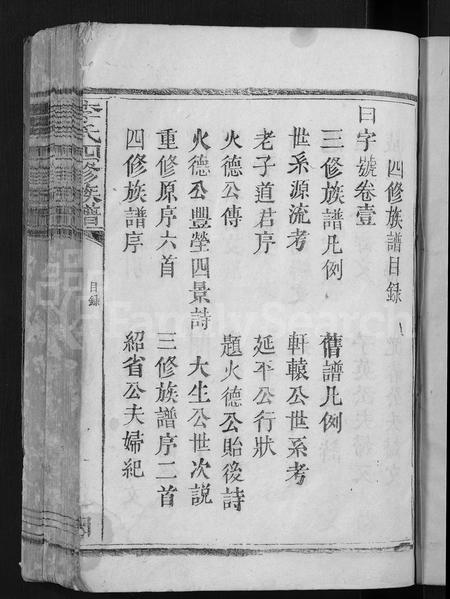 四修族譜目錄
日字號卷壹
三修族譜凡例 舊譜凡例
世系源流考 軒轅公世系考
老子道君序 延平公行狀
火德公傳 題火德公貽後詩
火德公豐塋四景詩 大生公世次説
重修原序六首 三修族譜序二首
四修族譜序 紹省公夫婦紀
李氏四修族譜
目錄
FamilySearch